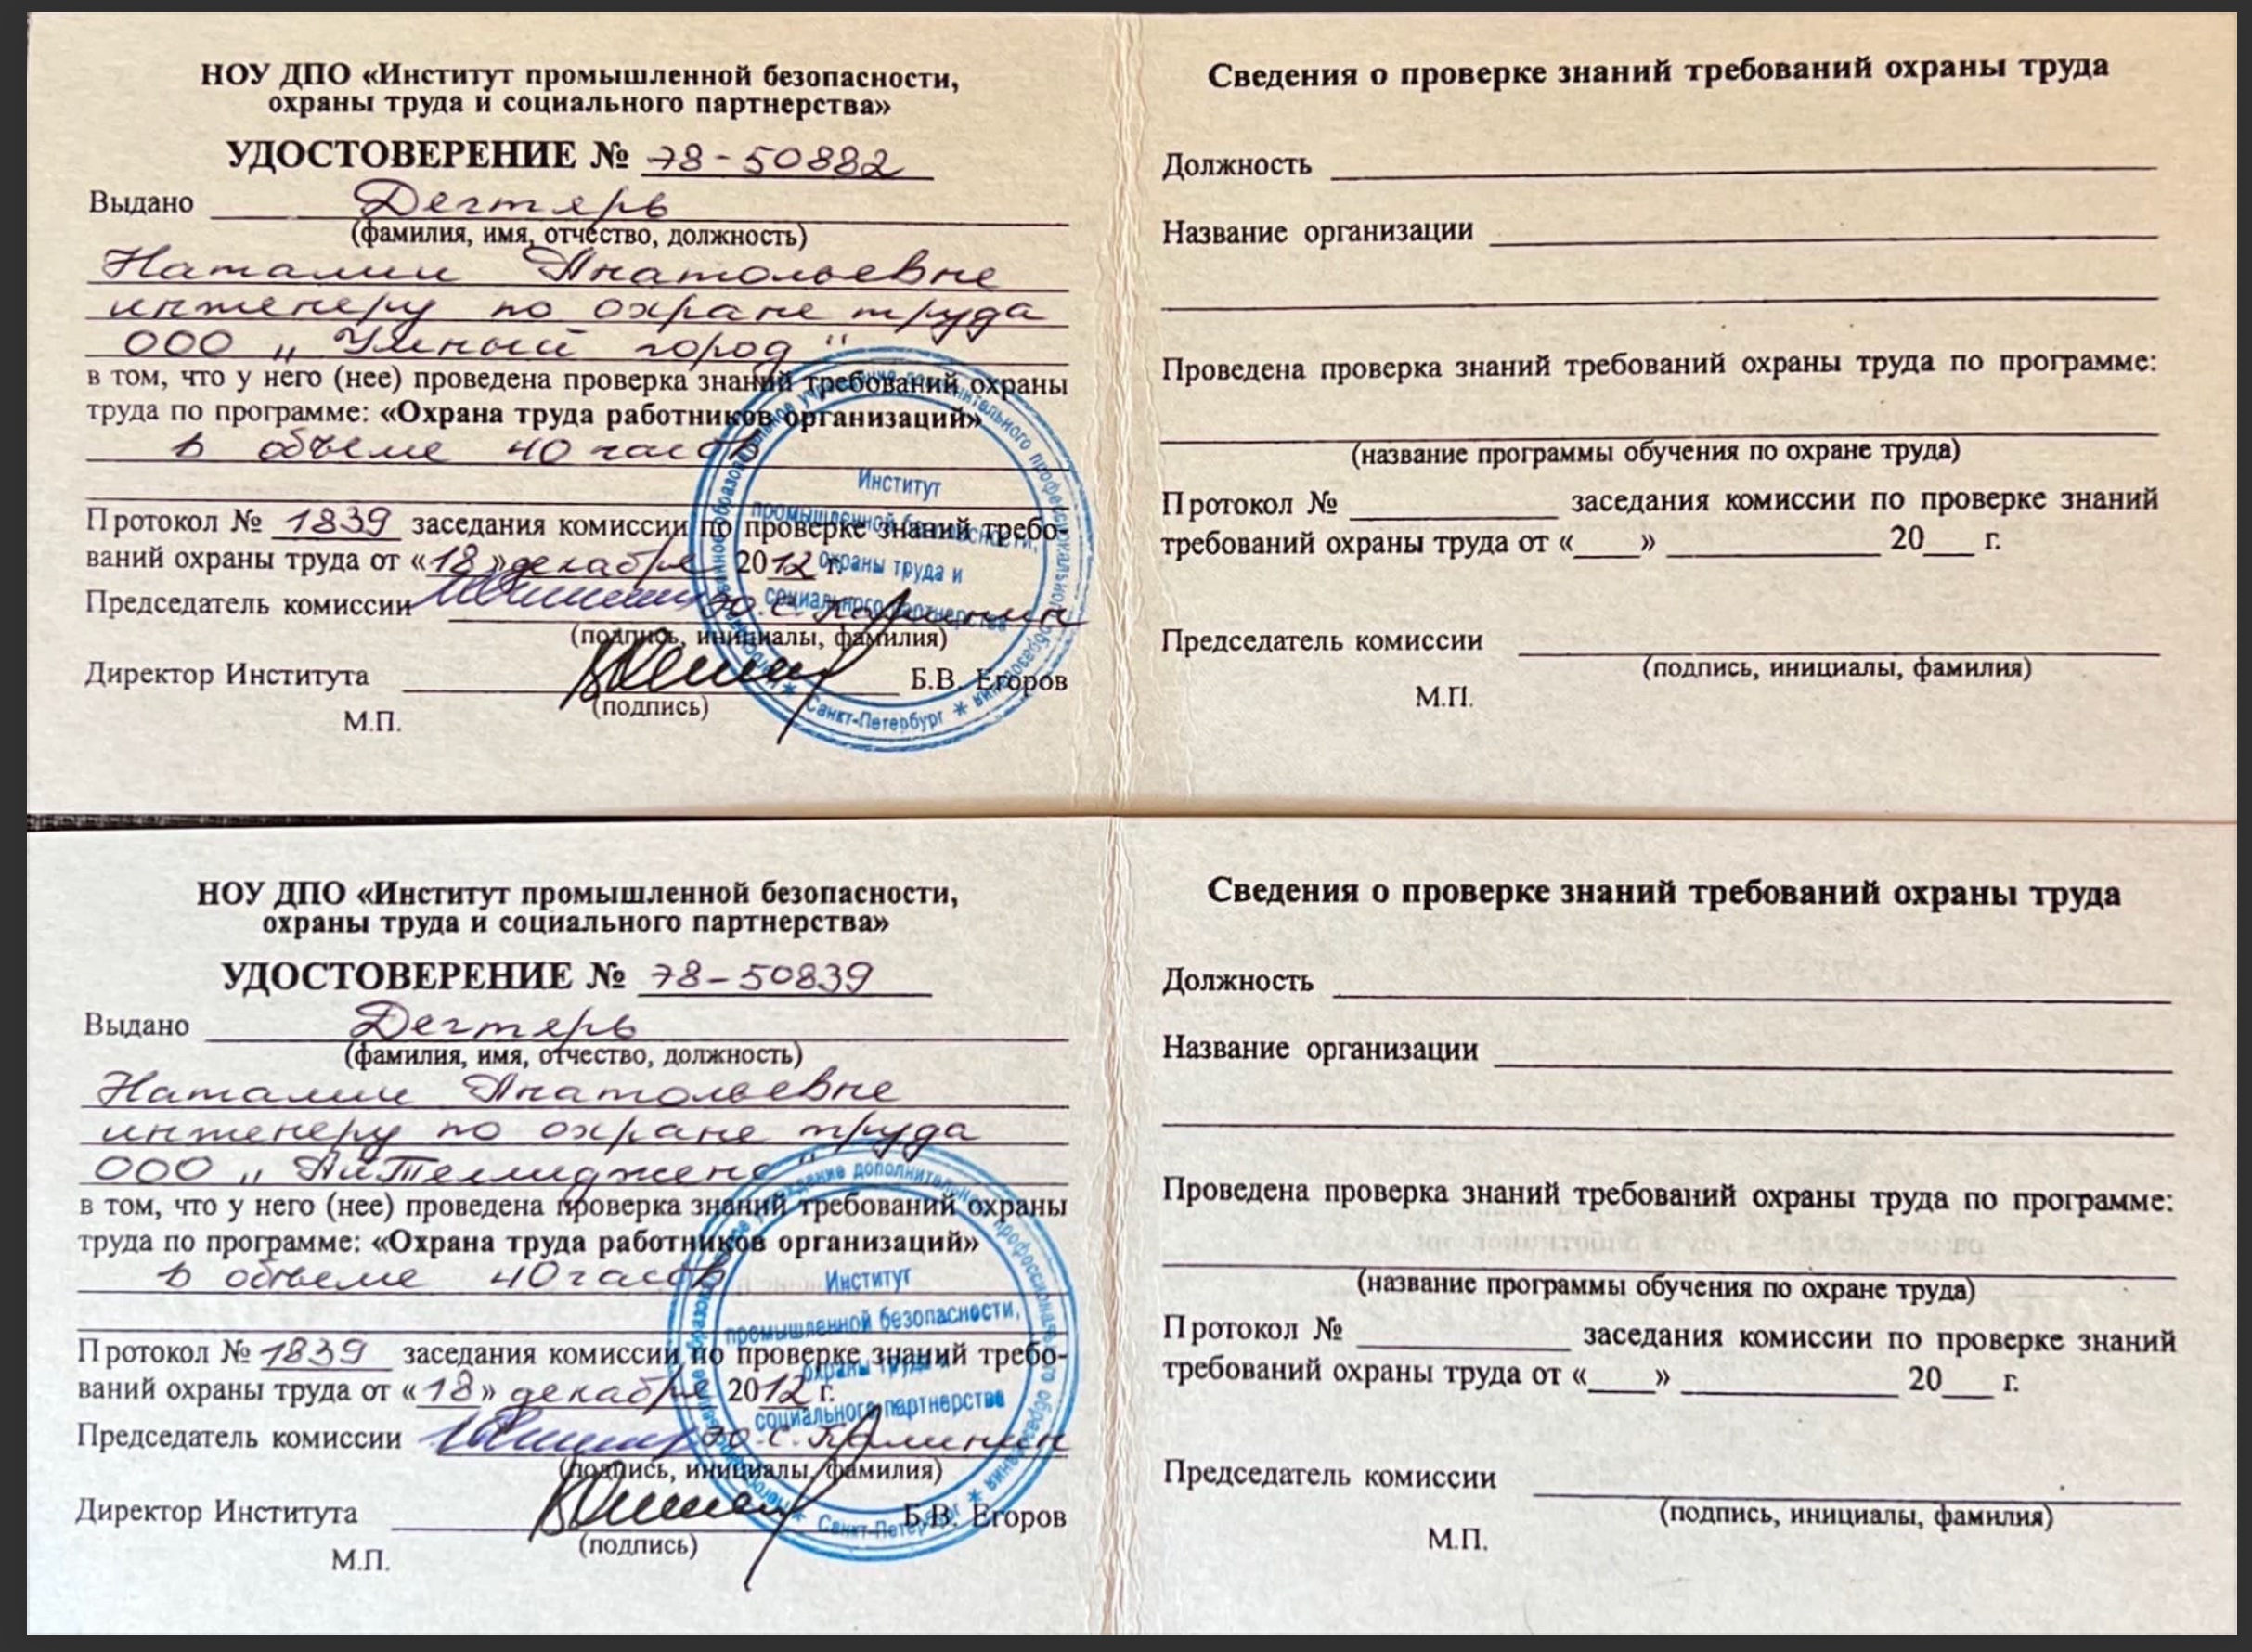 НОУ ДПО «Институт промышленной безопасности,
охраны труда и социального партнерства»
УДОСТОВЕРЕНИЕ № 78-50882
Выдано Дегтярь
(фамилия, имя, отчество, должность)
Наталии Анатольевне
инженеру по охране труда
ООО „Умный город"
в том, что у него (нее) проведена проверка знаний требований охраны
труда по программе: «Охрана труда работников организаций»
в объеме 40 часов
Протокол № 1839 заседания комиссии по проверке знаний требо-
ваний охраны труда от «18» декабря 2012 г.
Председатель комиссии Ю.С. Калинин
(подпись, инициалы, фамилия)
Директор Института Б.В. Егоров
(подпись)
М.П.
Институт
промышленной безопасности,
охраны труда и
социального партнерства
Санкт-Петербург
Сведения о проверке знаний требований охраны труда
Должность
Название организации
Проведена проверка знаний требований охраны труда по программе:
(название программы обучения по охране труда)
Протокол № заседания комиссии по проверке знаний
требований охраны труда от « » 20 г.
Председатель комиссии
(подпись, инициалы, фамилия)
М.П.
НОУ ДПО «Институт промышленной безопасности,
охраны труда и социального партнерства»
УДОСТОВЕРЕНИЕ № 78-50839
Выдано Дегтярь
(фамилия, имя, отчество, должность)
Наталии Анатольевне
инженеру по охране труда
ООО „АйТеллиджено"
в том, что у него (нее) проведена проверка знаний требований охраны
труда по программе: «Охрана труда работников организаций»
в объеме 40 часов
Протокол № 1839 заседания комиссии по проверке знаний требо-
ваний охраны труда от «18» декабря 2012 г.
Председатель комиссии Ю.С. Калинин
(подпись, инициалы, фамилия)
Директор Института Б.В. Егоров
(подпись)
М.П.
Институт
промышленной безопасности,
охраны труда и
социального партнерства
Санкт-Петербург
Сведения о проверке знаний требований охраны труда
Должность
Название организации
Проведена проверка знаний требований охраны труда по программе:
(название программы обучения по охране труда)
Протокол № заседания комиссии по проверке знаний
требований охраны труда от « » 20 г.
Председатель комиссии
(подпись, инициалы, фамилия)
М.П.